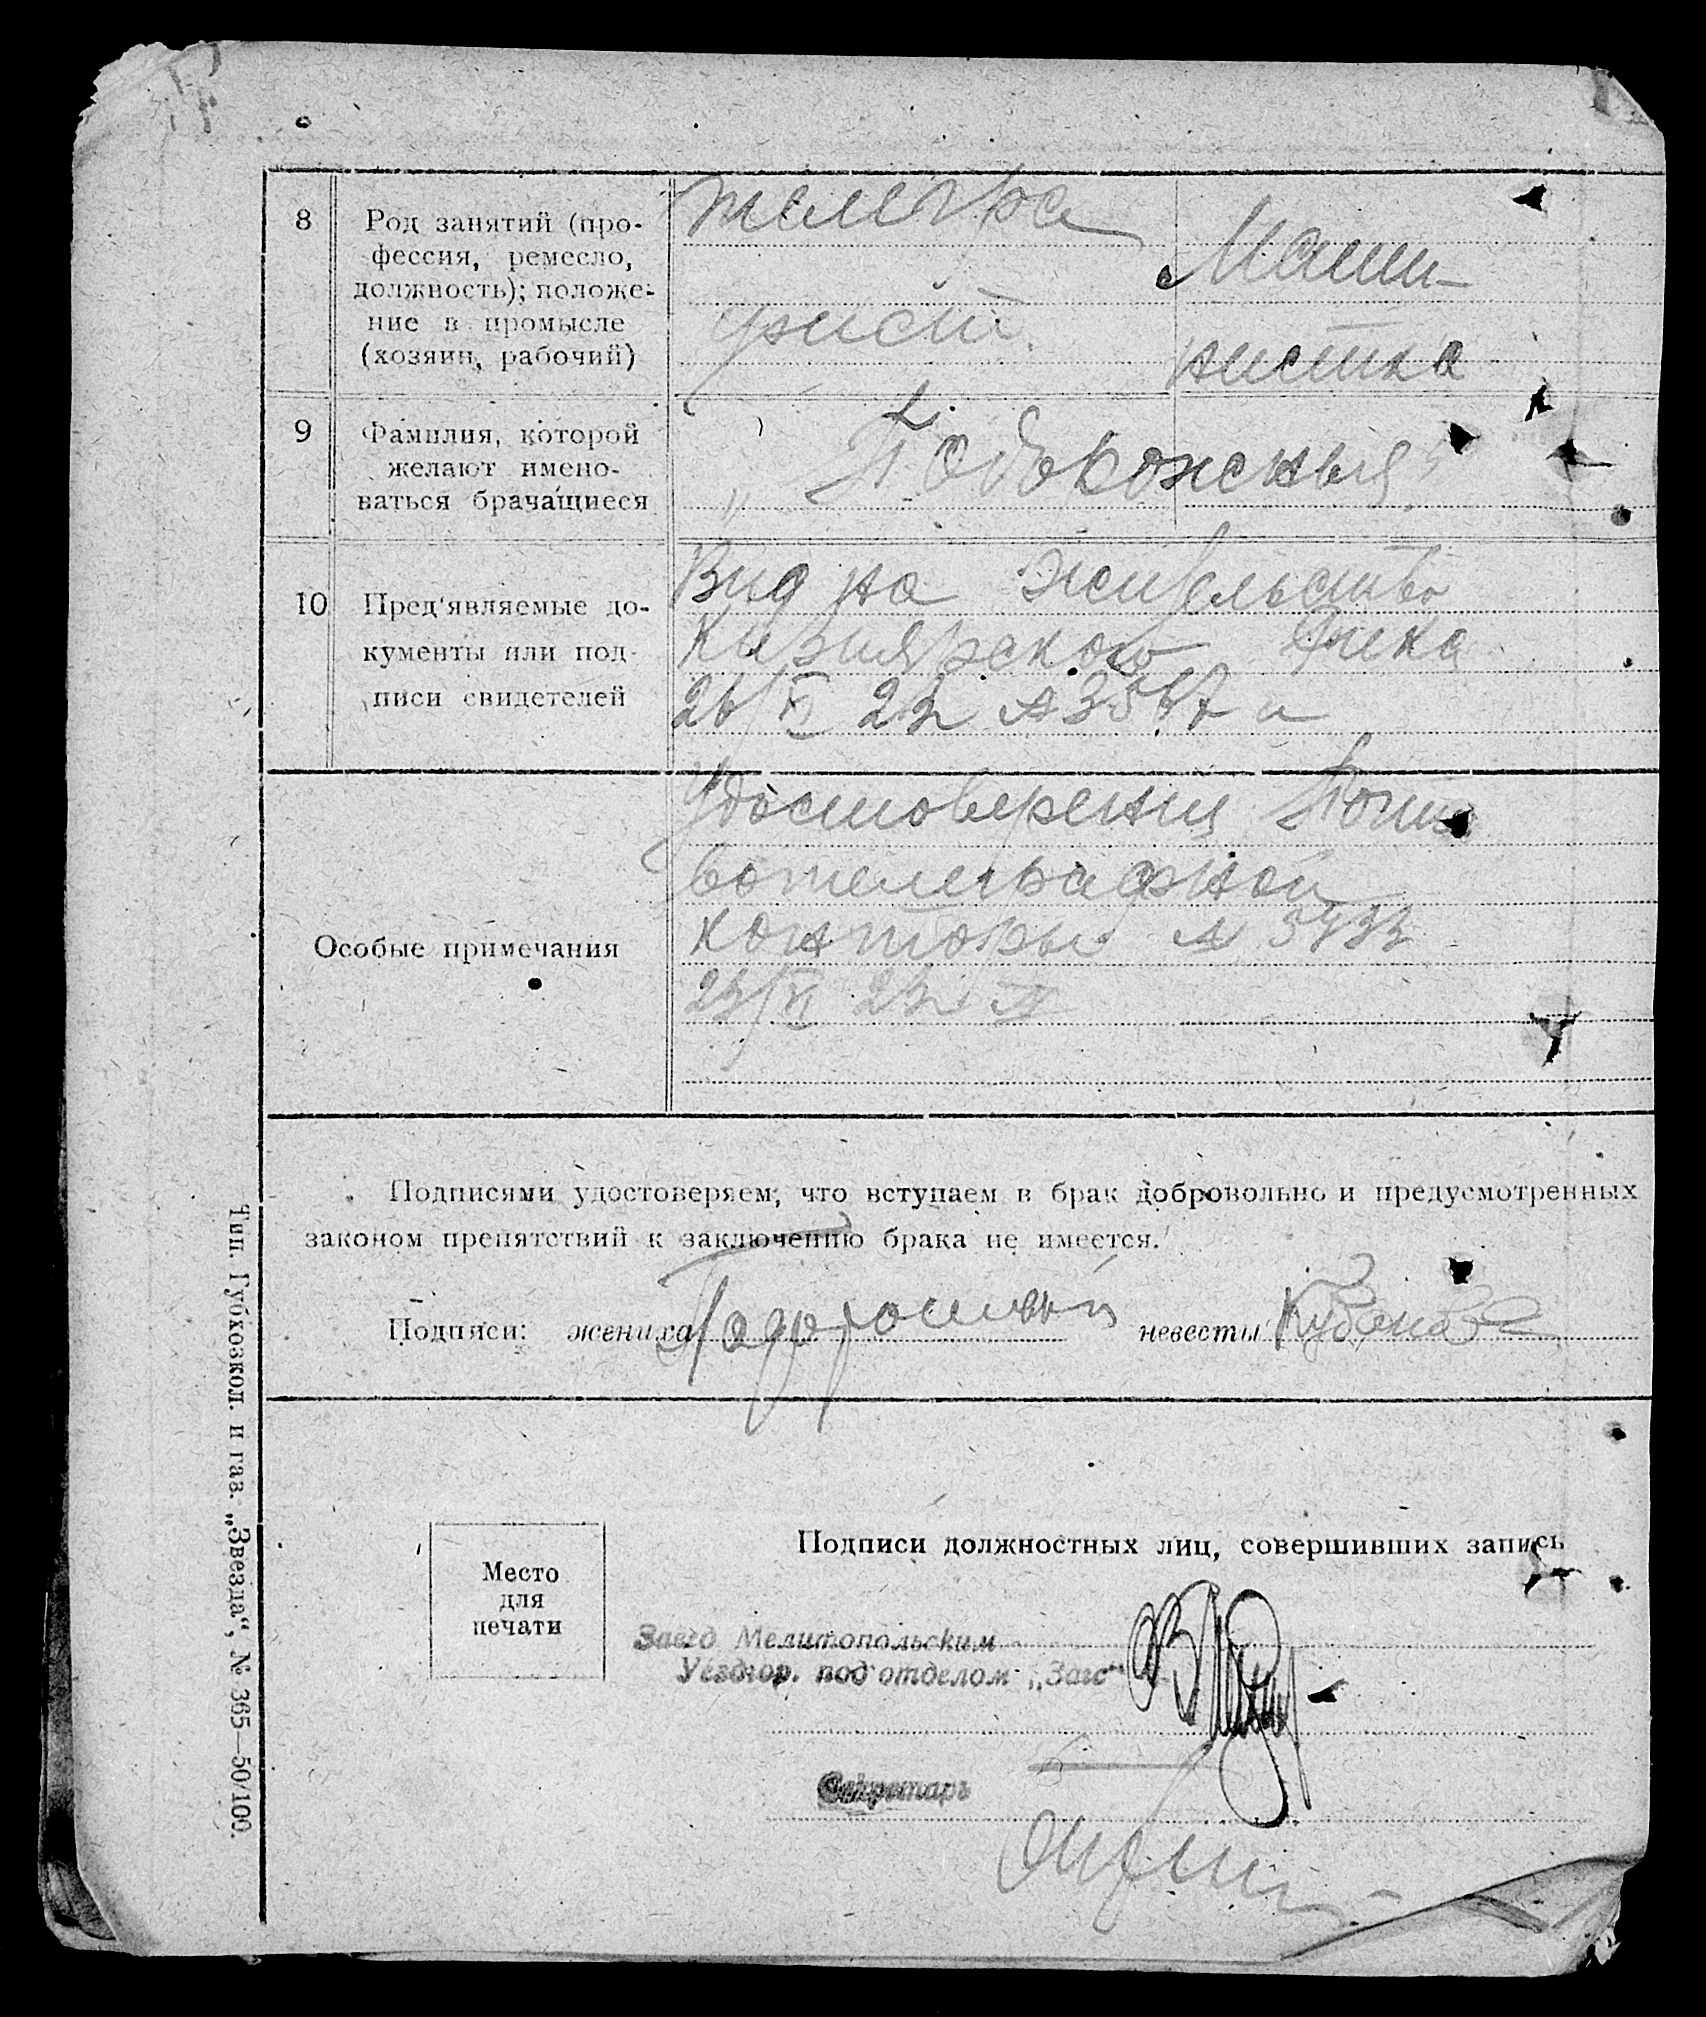 8
Род занятий (про-
фессия, ремесло,
должность); положе-
ние в промысле
(хозяин, рабочий)
телегра
фист.
Маши-
нистка
9
Фамилия, которой
желают имено-
ваться брачащиеся
10
Пред'являемые до-
кументы или под-
писи свидетелей
Вид на жительство
Кизиярского Рика
26/XI 23 № а
Особые примечания
Удостоверения Почто
вотелеграфной
конторы № 5733
23/XI 23
Подписями удостоверяем, что вступаем в брак добровольно и предусмотренных
законом препятствий к заключению брака не имеется.
Подписи: жениха невесты
Место
для
печати
Подписи должностных лиц, совершивших запись
Завед Мелитопольским
Уездгор. подотделом „Загс“
Секретарь
Тип. Губхозкол. и газ. „Звезда“, № 365—50/100.